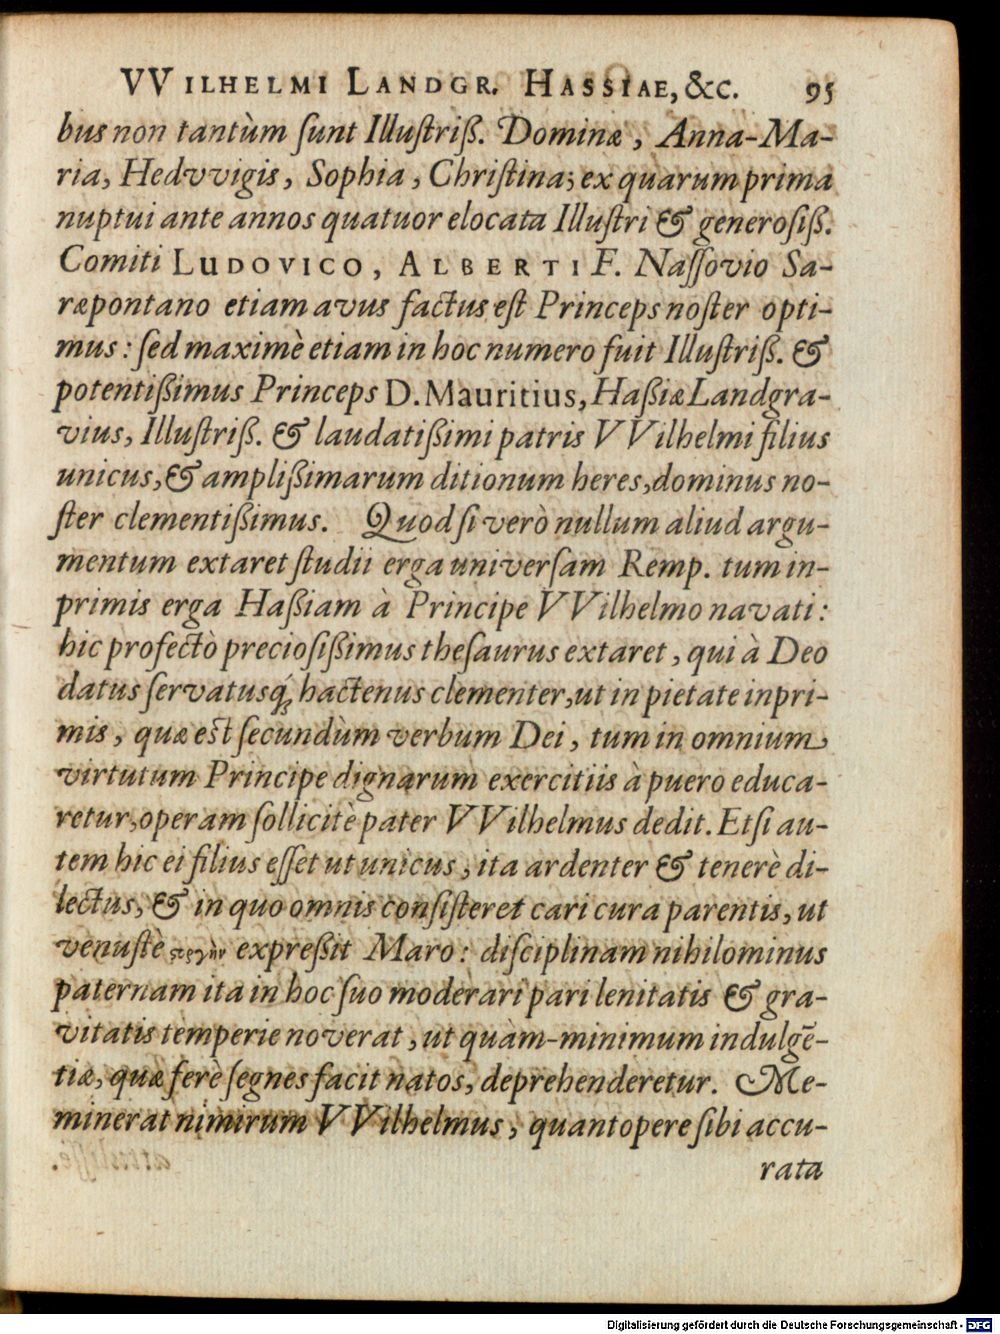 VVILHELMI LANDGR. HASSIAE, &c. 95
bus non tantùm ſunt Illuſtriß. Dominæ, Anna-Ma-
ria, Hedvvigis, Sophia, Chriſtina; ex quarum prima
nuptui ante annos quatuor elocata Illuſtri & generoſiß.
Comiti LUDOVICO, ALBERTI F. Naſſovio Sa-
ræpontano etiam avus factus eſt Princeps noſter opti-
mus: ſed maximè etiam in hoc numero fuit Illuſtriß. &
potentißimus Princeps D. Mauritius, Haßiæ Landgra-
vius, Illuſtriß. & laudatißimi patris VVilhelmi filius
unicus, & amplißimarum ditionum heres, dominus no-
ſter clementißimus. Quod ſi verò nullum aliud argu-
mentum extaret ſtudii erga univerſam Remp. tum in-
primis erga Haßiam à Principe VVilhelmo navati:
hic profectò precioſißimus theſaurus extaret, qui à Deo
datus ſervatusq́; hactenus clementer, ut in pietate inpri-
mis, quæ est ſecundùm verbum Dei, tum in omnium
virtutum Principe dignarum exercitiis à puero educa-
retur, operam ſollicitè pater VVilhelmus dedit. Etſi au-
tem hic ei filius eſſet ut unicus, ita ardenter & tenerè di-
lectus, & in quo omnis conſiſteret cari cura parentis, ut
venuſtè expreßit Maro: diſciplinam nihilominus
paternam ita in hoc ſuo moderari pari lenitatis & gra-
vitatis temperie noverat, ut quàm-minimum indulgē-
tiæ, quæ ferè ſegnes facit natos, deprehenderetur. Me-
minerat nimirum VVilhelmus, quantopere ſibi accu-
rata
Digitalisierung gefördert durch die Deutsche Forschungsgemeinschaft - DFG